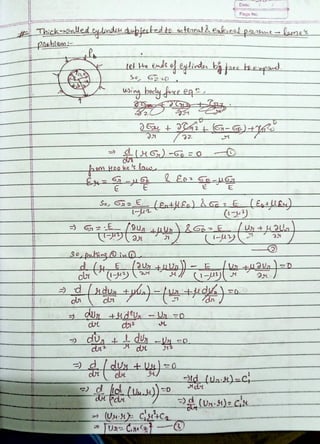 Date:
Page No:
Thick-walled cylinder subjected to internal & external pressure – Lame's
Problem:-
let the ends of cylinder be free to expand
So, σz=0
using body force eqⁿ,
⇒ d/dr (r σr) - σθ = 0 —①
from Hooke's law,
εr = σr/E - μσθ/E & εθ = σθ/E - μσr/E
So, σr = E/(1-μ²) (εr+μεθ) & σθ = E/(1-μ²) (εθ+μεr)
⇒ σr = E/(1-μ²) (∂ur/∂r + μur/r) & σθ = E/(1-μ²) (ur/r + μ∂ur/∂r)
—②
So, putting ② in ①,
d/dr (r E/(1-μ²) (∂ur/∂r + μur/r)) - E/(1-μ²) (ur/r + μ∂ur/∂r) = 0
⇒ d/dr (r dur/dr + μur) - (ur/r + μdur/dr) = 0
⇒ dur/dr + r d²ur/dr² - ur/r = 0
⇒ d²ur/dr² + 1/r dur/dr - ur/r² = 0
⇒ d/dr (dur/dr + ur/r) = 0
⇒ d/dr (1/r d/dr (ur.r)) = 0
⇒ 1/r d/dr (ur.r) = C₁'
⇒ d/dr (ur.r) = C₁'r